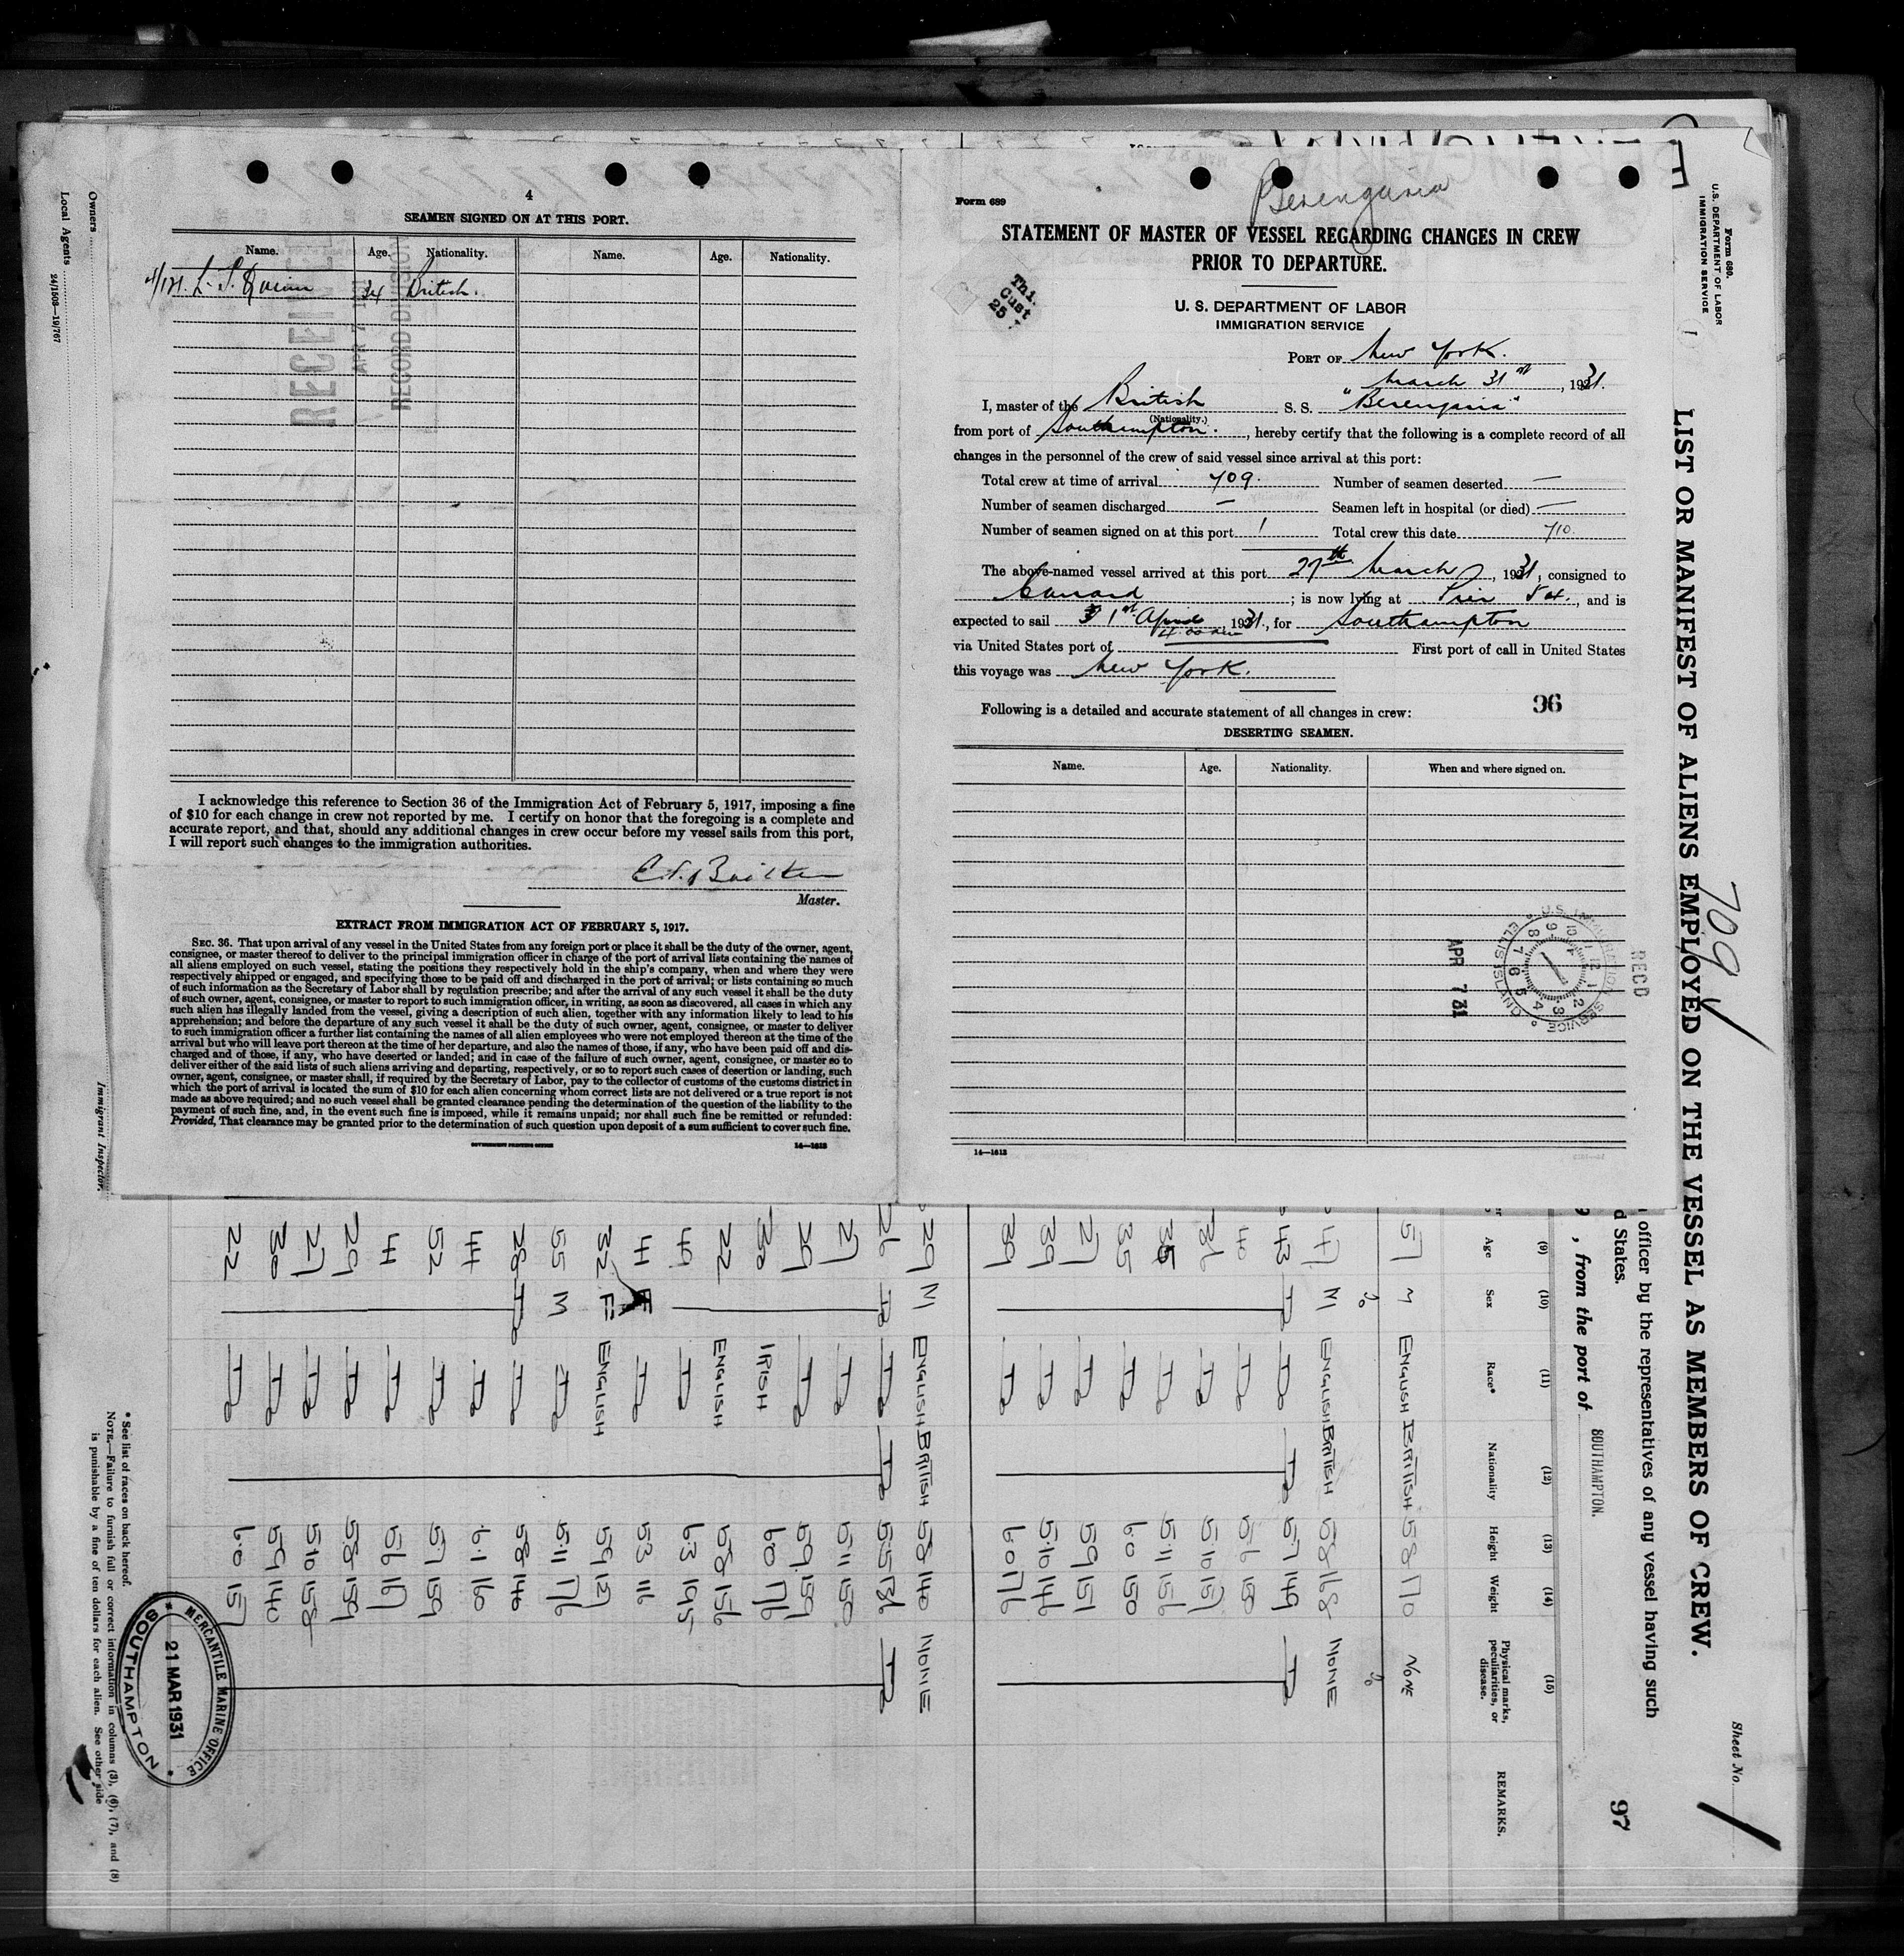 4
SEAMEN SIGNED ON AT THIS PORT.
Name. Age. Nationality. Name. Age. Nationality.
34 British.
RECEIVED
APR 7
RECORD DIVISION
I acknowledge this reference to Section 36 of the Immigration Act of February 5, 1917, imposing a fine
of $10 for each change in crew not reported by me. I certify on honor that the foregoing is a complete and
accurate report, and that, should any additional changes in crew occur before my vessel sails from this port,
I will report such changes to the immigration authorities.
Master.
EXTRACT FROM IMMIGRATION ACT OF FEBRUARY 5, 1917.
SEC. 36. That upon arrival of any vessel in the United States from any foreign port or place it shall be the duty of the owner, agent,
consignee, or master thereof to deliver to the principal immigration officer in charge of the port of arrival lists containing the names of
all aliens employed on such vessel, stating the positions they respectively hold in the ship's company, when and where they were
respectively shipped or engaged, and specifying those to be paid off and discharged in the port of arrival; or lists containing so much
of such information as the Secretary of Labor shall by regulation prescribe; and after the arrival of any such vessel it shall be the duty
of such owner, agent, consignee, or master to report to such immigration officer, in writing, as soon as discovered, all cases in which any
such alien has illegally landed from the vessel, giving a description of such alien, together with any information likely to lead to his
apprehension; and before the departure of any such vessel it shall be the duty of such owner, agent, consignee, or master to deliver
to such immigration officer a further list containing the names of all alien employees who were not employed thereon at the time of the
arrival but who will leave port thereon at the time of her departure, and also the names of those, if any, who have been paid off and dis-
charged and of those, if any, who have deserted or landed; and in case of the failure of such owner, agent, consignee, or master so to
deliver either of the said lists of such aliens arriving and departing, respectively, or so to report such cases of desertion or landing, such
owner, agent, consignee, or master shall, if required by the Secretary of Labor, pay to the collector of customs of the customs district in
which the port of arrival is located the sum of $10 for each alien concerning whom correct lists are not delivered or a true report is not
made as above required; and no such vessel shall be granted clearance pending the determination of the question of the liability to the
payment of such fine, and, in the event such fine is imposed, while it remains unpaid; nor shall such fine be remitted or refunded:
Provided, That clearance may be granted prior to the determination of such question upon deposit of a sum sufficient to cover such fine.
GOVERNMENT PRINTING OFFICE 14—1613
Berengaria
Form 689
STATEMENT OF MASTER OF VESSEL REGARDING CHANGES IN CREW
PRIOR TO DEPARTURE.
U. S. DEPARTMENT OF LABOR
IMMIGRATION SERVICE
PORT OF New York.
March 31st, 1931.
I, master of the British S. S. "Berengaria"
(Nationality.)
from port of Southampton., hereby certify that the following is a complete record of all
changes in the personnel of the crew of said vessel since arrival at this port:
Total crew at time of arrival 709. Number of seamen deserted —
Number of seamen discharged — Seamen left in hospital (or died) —
Number of seamen signed on at this port 1 Total crew this date 710.
The above-named vessel arrived at this port 27th March, 1931, consigned to
Cunard; is now lying at Pier 54., and is
expected to sail 1st April, 1931., for Southampton
via United States port of First port of call in United States
this voyage was New York.
Following is a detailed and accurate statement of all changes in crew: 96
DESERTING SEAMEN.
Name. Age. Nationality. When and where signed on.
14—1613
REC'D
U.S. IMMIGRATION SERVICE ELLIS ISLAND
APR 7 31
Form 680.
U. S. DEPARTMENT OF LABOR
IMMIGRATION SERVICE
LIST OR MANIFEST OF ALIENS EMPLOYED ON THE VESSEL AS MEMBERS OF CREW.
709
Sheet No. 1
officer by the representatives of any vessel having such
d States.
, from the port of SOUTHAMPTON.
97
(9) (10) (11) (12) (13) (14) (15)
Age Sex Race* Nationality Height Weight Physical marks, peculiarities, or disease. REMARKS.
57 M ENGLISH BRITISH 58 170 NONE
47 M ENGLISH BRITISH 58 168 NONE
43 Do Do Do 57 149 Do
40 Do 56 150
36 Do 510 157
35 Do 511 156
35 Do 60 150
27 Do 59 151
39 Do 510 146
39 Do 60 176
29 M ENGLISH BRITISH 58 140 NONE
26 Do Do Do 55 136 Do
27 Do 511 150
29 Do 59 159
30 IRISH 60 176
22 ENGLISH 58 156
49 Do 63 195
41 F Do 53 116
32 F ENGLISH 59 127
55 M Do 511 176
28 Do Do 58 146
44 Do 61 160
52 Do 57 159
41 Do 56 167
29 Do 58 159
27 Do 510 158
30 Do 59 140
22 Do 60 157
* See list of races on back hereof.
NOTE.—Failure to furnish full or correct information in columns (3), (6), (7), and (8)
is punishable by a fine of ten dollars for each alien. See other side
MERCANTILE MARINE OFFICE
21 MAR 1931
SOUTHAMPTON
Owners
Local Agents
24/1508—19/767
Immigrant Inspector.